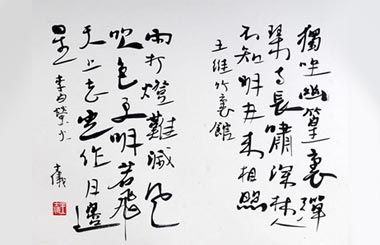 獨坐幽篁裏彈
琴句長嘯深林人
不知明月來相照
王維竹裏館
雨打燈難滅風
吹色更明若飛
天上去定作月邊
星 李白螢火
義